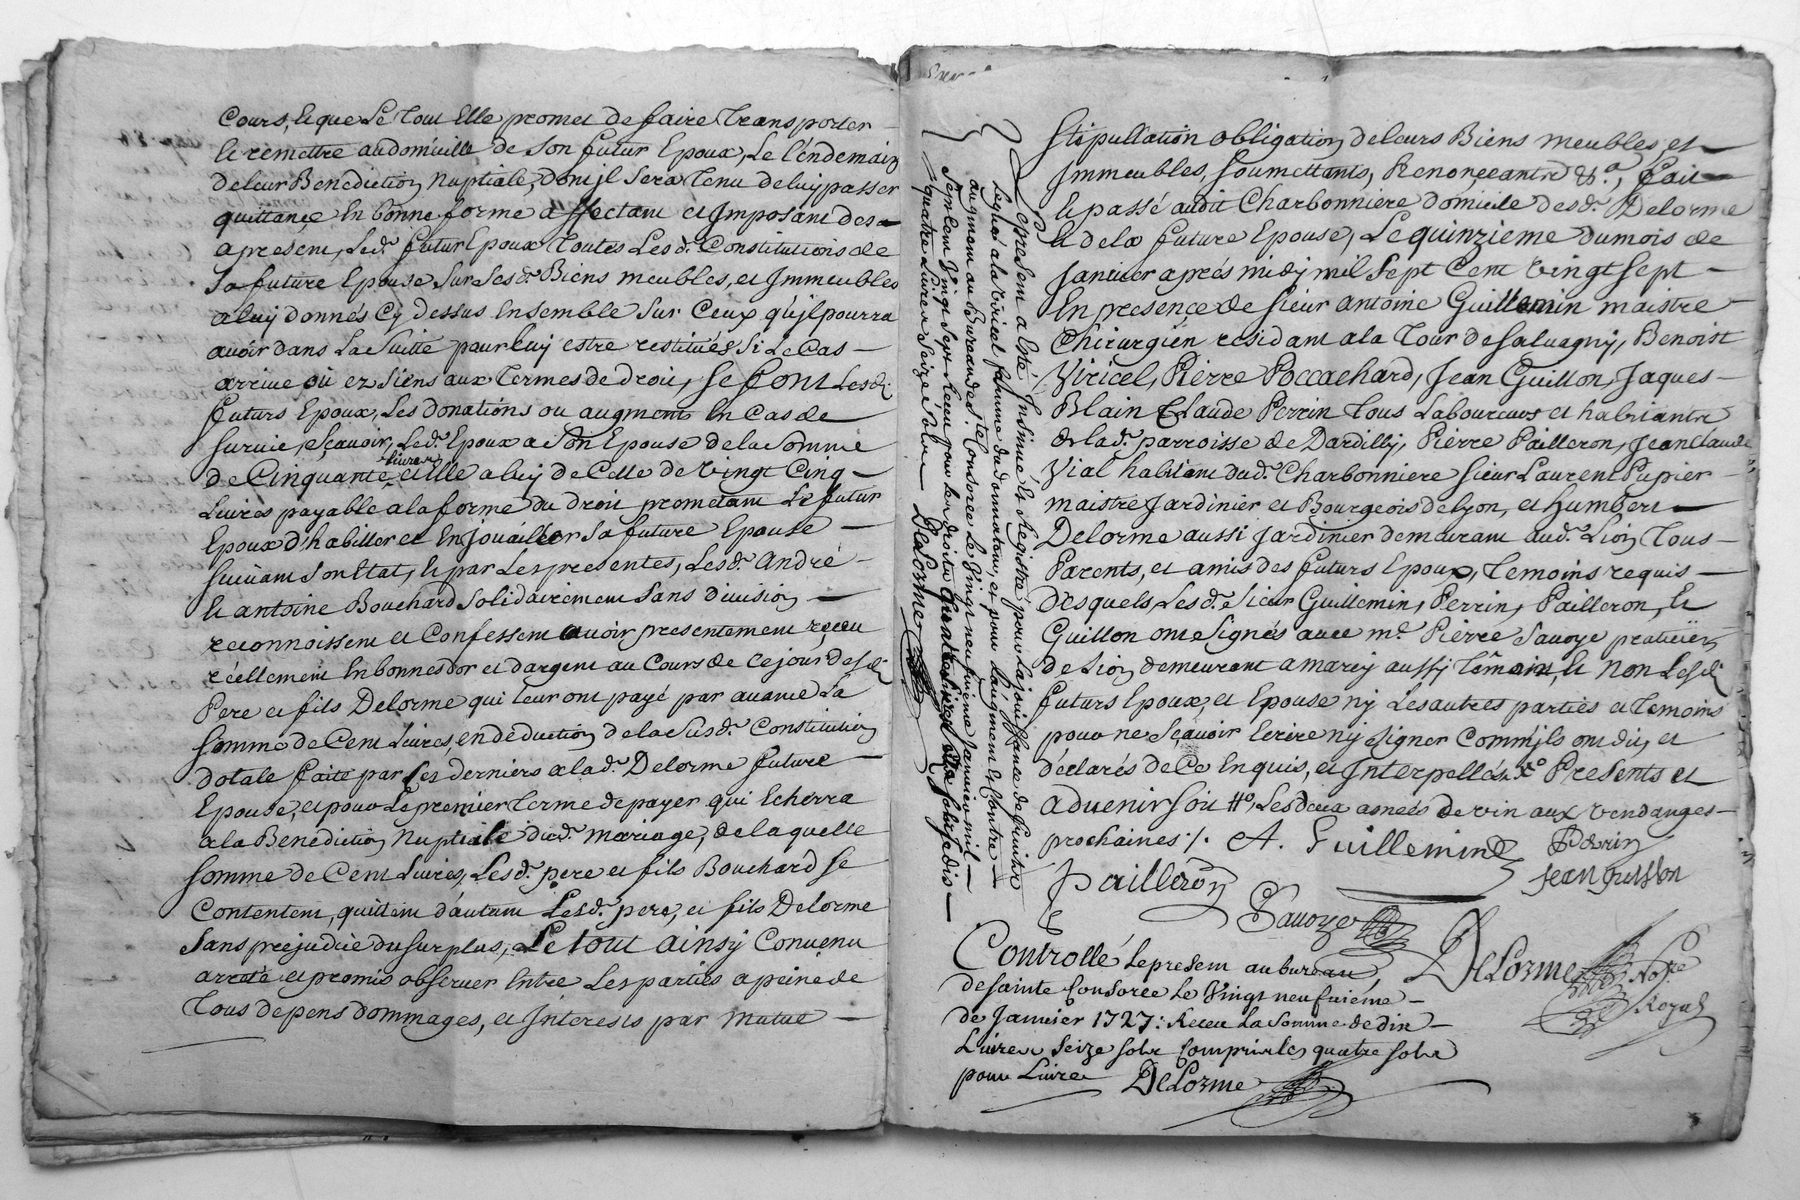 Cours, et que Le tout Elle promet de faire Transporter
et remettre au domicille de Son futur Epoux, Le Lendemain
de leur Benediction Nuptiale, dont jl Sera Tenu de luy passer
quittance En bonne forme affectant et Imposant des a
a present, Led. futur Epoux Toutes Les d. Constitutions de
Sa future Epouse Sur Ses d. Biens meubles, et Immeubles
a luy donnés Cy dessus Ensemble Sur Ceux qu'jl pourra
avoir dans La Suitte pour luy estre restitués Si Le Cas
arrive ou ez Siens aux Termes de droit, Se font Les d.
futurs Epoux, Les donations ou augment En Cas de
Survie, Sçavoir, Led. Epoux a Son Epouse de la Somme
de Cinquante livres, et Elle a luy de Celle de vingt Cinq
Livres payable a la forme du droit prometant Le futur
Epoux d'habiller et Enjouáiller Sa future Epouse
Suivant Son Etat, et par Les presentes, Les d. André
et antoine Bouchard Solidairement Sans division
reconnoissent et Confessent avoir presentement reçeu
réellement En bonnes dor et dargent au Cours de Ce jour des d.
Pere et fils Delorme qui leur ont payé par avance La
Somme de Cent Livres, en déduction de la Susd. Constitution
dotale faite par Les derniers a lad. Delorme future
Epouse, et pour Le premier Terme de payer qui Echerra
a la Benédiction Nuptiale dud. mariage, de laquelle
Somme de Cent Livres, Les d. pere et fils Bouchard Se
Contentent, quittent d'autant Les d. pere, et fils Delorme
Sans prejudice du Surplus, Le tout ainsy Convenu
arreté et promis observer Entre Les parties a peine de
Tous depens dommages, et Interests par mutue
Le present a esté Insinué et Registré pour La jouissance de fruits
Legué a la viricel femme du donnateur, et pour Laugment et Contre
augment au Bureau de Ste Consorce Le Vingt neufvieme Janvier mil
Sept Cent Vingt Sept Receu pour les droits
quatre Livres Seize Sols DeLorme
Stipullation obligation de leurs Biens meubles, et
Immeubles, Soumettants, Renonceants &a, fait
et passé audit Charbonniere domicile des d. Delorme
et de la future Epouse, Le quinzieme du mois de
Janvier aprés midy mil Sept Cent vingt Sept
En presence de Sieur antoine Guillemin maistre
Chirurgien residant a la Tour de Salvagny, Benoist
Viricel, Pierre Poccachard, Jean Guillon, Jaques
Blain Claude Perrin Tous Laboureurs et habitants
de lad. parroisse de Dardilly, Pierre Pailleron, Jean Claude
Vial habitant dud. Charbonniere Sieur Laurent Pupier
maistre Jardinier et Bourgeois de Lyon, et Humbert
Delorme aussi Jardinier demeurant aud. Lion Tous
Parents, et amis des futurs Epoux, Temoins requis
desquels Les d. Sieur Guillemin, Perrin, Pailleron, et
Guillon ont Signés avec me. Pierre Savoye praticien
de Lion demeurant a marcy aussy Témoin, et Non Les d.
futurs Epoux, et Epouse ny Les autres parties et Temoins
pour ne Sçavoir Ecrire ny Signer Comm'jls ont dit, et
déclarés de Ce Enquis, et Interpellés. Xo Presents et
advenir Soit #o, Les deux asneés de vin aux vendanges
prochaines /. A. Guillemin Perin
Jean Guillon
Pailleron
Savoye
DeLorme No.re
Royal
Controllé Le present au bureau
de Sainte Consorce Le Vingt neufvieme
de Janvier 1727: Receu La Somme de dix
Livres Seize sols Compris les quatre sols
pour Livre DeLorme